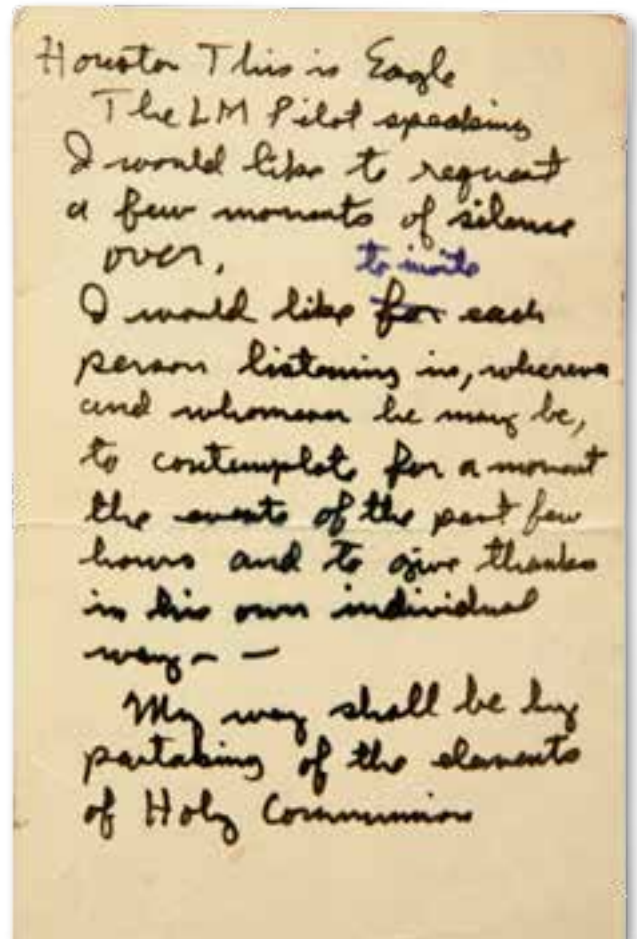 Houston This is Eagle
The LM Pilot speaking
I would like to request
a few moments of silence
over.
to invite
I would like for each
person listening in, wherever
and whomever he may be,
to contemplate for a moment
the events of the past few
hours and to give thanks
in his own individual
way – –
My way shall be by
partaking of the elements
of Holy Communion